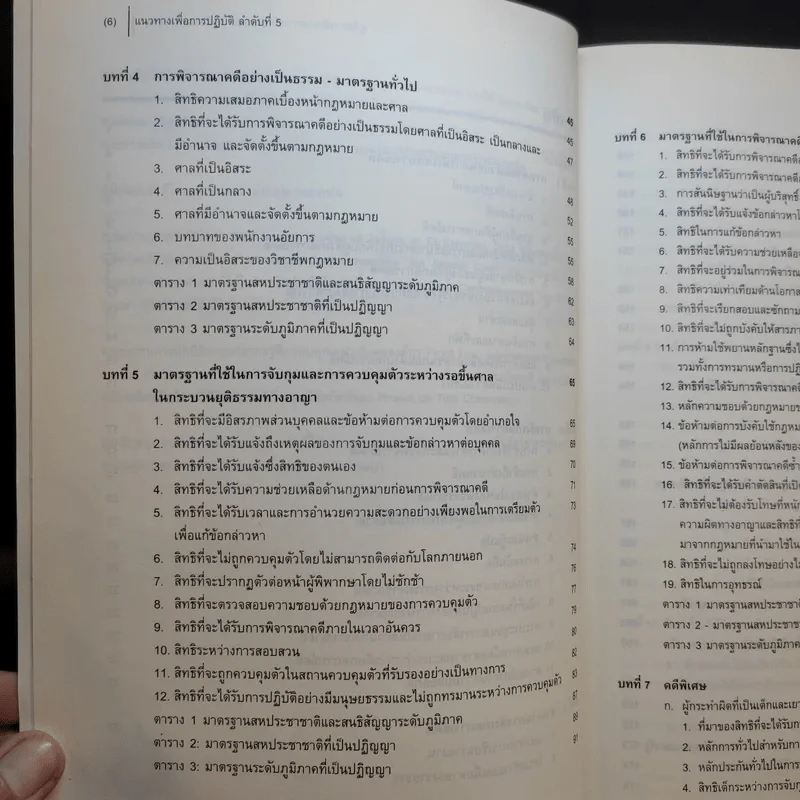 (6) แนวทางเพื่อการปฏิบัติ ลำดับที่ 5
บทที่ 4 การพิจารณาคดีอย่างเป็นธรรม - มาตรฐานทั่วไป
1. สิทธิความเสมอภาคเบื้องหน้ากฎหมายและศาล 45
2. สิทธิที่จะได้รับการพิจารณาคดีอย่างเป็นธรรมโดยศาลที่เป็นอิสระ เป็นกลางและ 46
มีอำนาจ และจัดตั้งขึ้นตามกฎหมาย 47
3. ศาลที่เป็นอิสระ
4. ศาลที่เป็นกลาง 48
5. ศาลที่มีอำนาจและจัดตั้งขึ้นตามกฎหมาย 52
6. บทบาทของพนักงานอัยการ 55
7. ความเป็นอิสระของวิชาชีพกฎหมาย 55
ตาราง 1 มาตรฐานสหประชาชาติและสนธิสัญญาระดับภูมิภาค 58
ตาราง 2 มาตรฐานสหประชาชาติที่เป็นปฏิญญา 62
ตาราง 3 มาตรฐานระดับภูมิภาคที่เป็นปฏิญญา 63
64
บทที่ 5 มาตรฐานที่ใช้ในการจับกุมและการควบคุมตัวระหว่างรอขึ้นศาล 65
ในกระบวนยุติธรรมทางอาญา
1. สิทธิที่จะมีอิสรภาพส่วนบุคคลและข้อห้ามต่อการควบคุมตัวโดยอำเภอใจ 65
2. สิทธิที่จะได้รับแจ้งถึงเหตุผลของการจับกุมและข้อกล่าวหาต่อบุคคล 69
3. สิทธิที่จะได้รับแจ้งซึ่งสิทธิของตนเอง 70
4. สิทธิที่จะได้รับความช่วยเหลือด้านกฎหมายก่อนการพิจารณาคดี 71
5. สิทธิที่จะได้รับเวลาและการอำนวยความสะดวกอย่างเพียงพอในการเตรียมตัว 73
เพื่อแก้ข้อกล่าวหา
6. สิทธิที่จะไม่ถูกควบคุมตัวโดยไม่สามารถติดต่อกับโลกภายนอก 74
7. สิทธิที่จะปรากฏตัวต่อหน้าผู้พิพากษาโดยไม่ชักช้า 76
8. สิทธิที่จะตรวจสอบความชอบด้วยกฎหมายของการควบคุมตัว 77
9. สิทธิที่จะได้รับการพิจารณาคดีภายในเวลาอันควร 79
10. สิทธิระหว่างการสอบสวน 80
11. สิทธิที่จะถูกควบคุมตัวในสถานควบคุมตัวที่รับรองอย่างเป็นทางการ 82
12. สิทธิที่จะได้รับการปฏิบัติอย่างมีมนุษยธรรมและไม่ถูกทรมานระหว่างการควบคุมตัว 83
ตาราง 1 มาตรฐานสหประชาชาติและสนธิสัญญาระดับภูมิภาค 87
ตาราง 2: มาตรฐานสหประชาชาติที่เป็นปฏิญญา 89
ตาราง 3: มาตรฐานระดับภูมิภาคที่เป็นปฏิญญา 91
บทที่ 6 มาตรฐานที่ใช้ในการพิจารณาคดี
1. สิทธิที่จะได้รับการพิจารณาคดี
2. สิทธิที่จะได้รับการพิจารณาคดี
3. การสันนิษฐานว่าเป็นผู้บริสุทธิ์
4. สิทธิที่จะได้รับแจ้งข้อกล่าวหา
5. สิทธิในการแก้ข้อกล่าวหา
6. สิทธิที่จะได้รับความช่วยเหลือ
7. สิทธิที่จะอยู่ร่วมในการพิจารณ
8. สิทธิความเท่าเทียมด้านโอกาส
9. สิทธิที่จะเรียกสอบและซักถาม
10. สิทธิที่จะไม่ถูกบังคับให้สารภา
11. การห้ามใช้พยานหลักฐานซึ่งไ
รวมทั้งการทรมานหรือการปฏิ
12. สิทธิที่จะได้รับการพิจารณาคดี
13. หลักความชอบด้วยกฎหมายข
14. ข้อห้ามต่อการบังคับใช้กฎหม
(หลักการไม่มีผลย้อนหลังของ
15. ข้อห้ามต่อการพิจารณาคดีซ้ำ
16. สิทธิที่จะได้รับคำตัดสินที่เป็
17. สิทธิที่จะไม่ต้องรับโทษที่หนัก
ความผิดทางอาญาและสิทธิที่
มาจากกฎหมายที่นำมาใช้ใน
18. สิทธิที่จะไม่ถูกลงโทษอย่างไม่
19. สิทธิในการอุทธรณ์
ตาราง 1 มาตรฐานสหประชาชาติ
ตาราง 2 - มาตรฐานสหประชาชา
ตาราง 3 มาตรฐานระดับภูมิภาค
บทที่ 7 คดีพิเศษ
ก. ผู้กระทำผิดที่เป็นเด็กและเยา
1. ที่มาของสิทธิที่จะได้รับ
2. หลักการทั่วไปสำหรับกา
3. หลักประกันทั่วไปในการ
4. สิทธิเด็กระหว่างการจับก